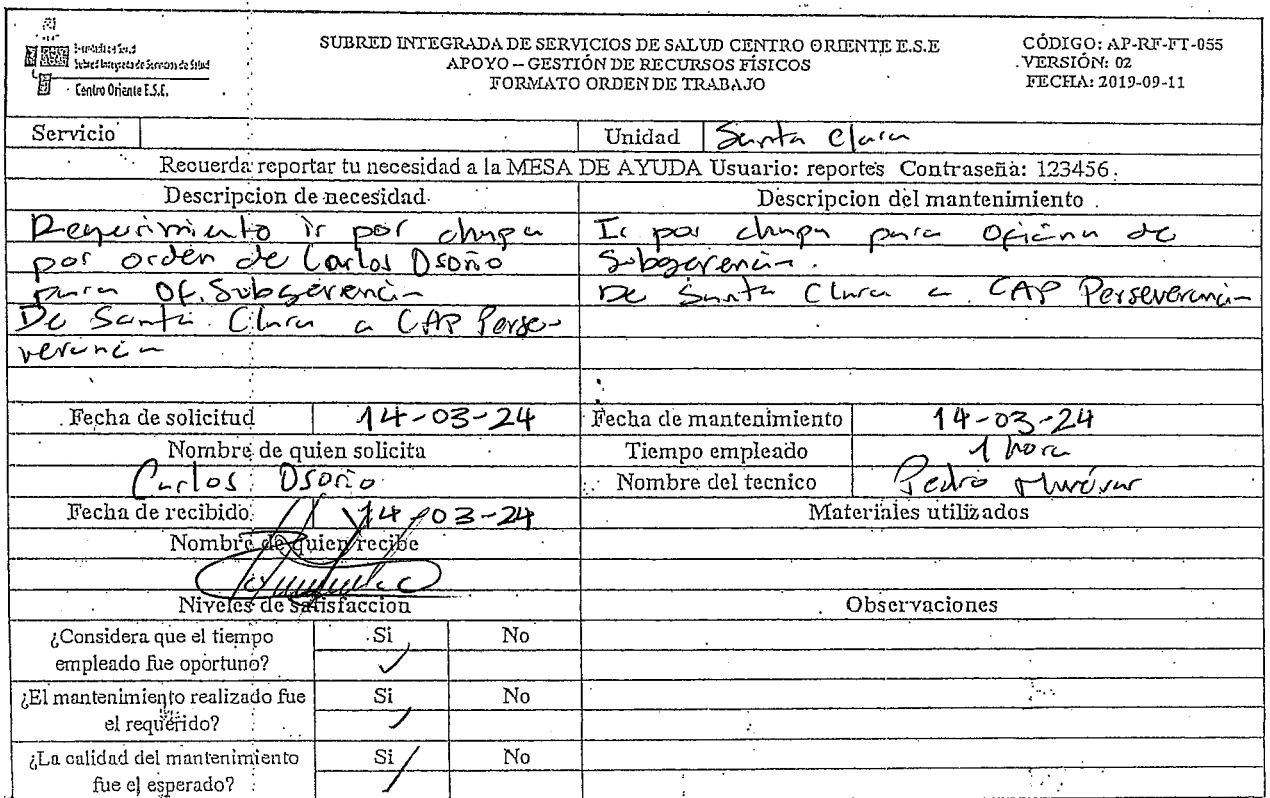 Subred Integrada de Servicios de Salud
Centro Oriente E.S.E.
SUBRED INTEGRADA DE SERVICIOS DE SALUD CENTRO ORIENTE E.S.E
APOYO – GESTIÓN DE RECURSOS FÍSICOS
FORMATO ORDEN DE TRABAJO
CÓDIGO: AP-RF-FT-055
VERSIÓN: 02
FECHA: 2019-09-11
Servicio
Unidad Santa Clara
Recuerda reportar tu necesidad a la MESA DE AYUDA Usuario: reportes Contraseña: 123456.
Descripcion de necesidad
Requerimiento ir por chapa
por orden de Carlos Osorio
para Of. Subgerencia
De Santa Clara a CAP Perse-
verancia
Descripcion del mantenimiento
Ir por chapa para Oficina de
Subgerencia.
De Santa Clara a CAP Perseverancia
Fecha de solicitud 14-03-24
Fecha de mantenimiento 14-03-24
Nombre de quien solicita
Carlos Osorio
Tiempo empleado 1 hora
Nombre del tecnico Pedro
Fecha de recibido 14-03-24
Materiales utilizados
Nombre de quien recibe
Niveles de satisfaccion
Observaciones
¿Considera que el tiempo
empleado fue oportuno?
Si No
✓
¿El mantenimiento realizado fue
el requerido?
Si No
✓
¿La calidad del mantenimiento
fue el esperado?
Si No
✓